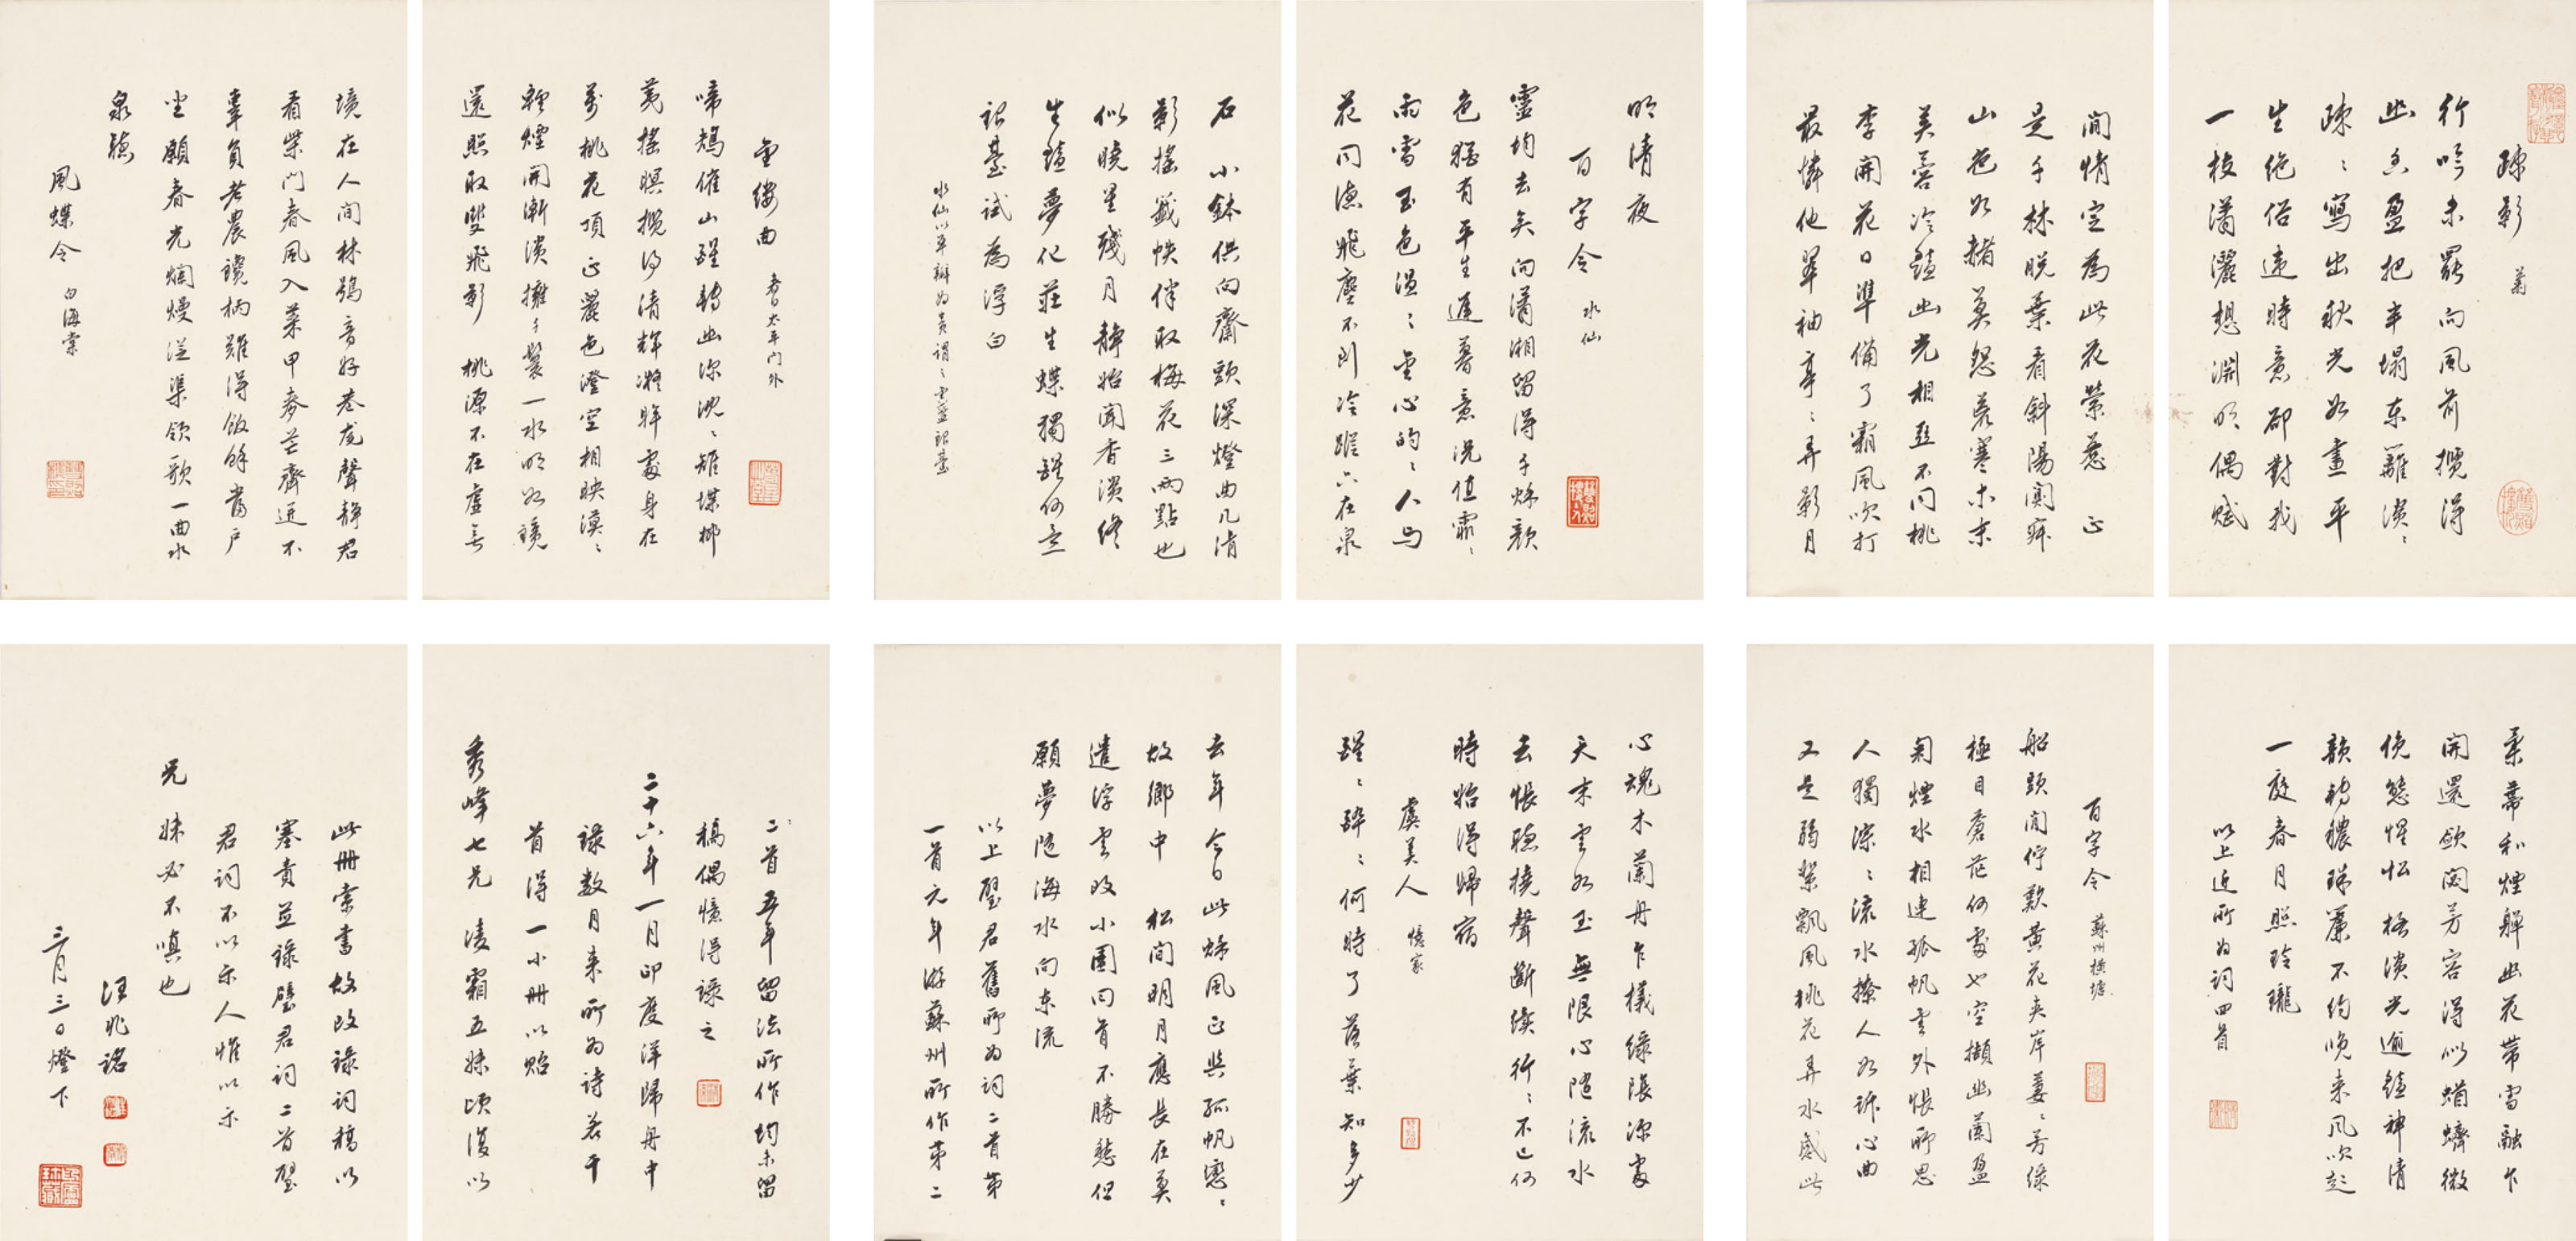 疎影 菊
行吟未罷向風前攬得
幽香盈把半塌東籬淡〻
疎〻寫出秋光如畫平
生絶俗違時意卻對我
一枝瀟灑想淵明偶賦
閒情定為此花縈惹 正
是千林脱葉看斜陽闃寂
山色如赭莫怨荒寒木末
芙蓉冷艶幽光相亞不同桃
李開花日準備了霜風吹打
最憐他翠袖亭〻弄影月
明清夜
百字令 水仙
靈均去矣向瀟湘留得千秋顏
色猶有平生遲暮意況值霏〻
雨雪玉色温〻雲心的〻人與
花同潔飛塵不到冷蹤只在泉
石 小鉢供向齋頭深燈曲几清
影搖籤帙伴取梅花三兩點也
似曉星殘月靜始聞香淡終
生艶夢化莊生蝶獨醒何意
銀臺試為浮白
水仙以單瓣為貴謂之金盞銀臺
金縷曲 春日太平門外
啼鴂催山醒轉幽深沈〻雉堞柳
荑搖暝攬得清輝凝眸處身在
萬桃花頂正麗色澄空相映漠〻
輕煙開漸淡擁千鬟一水明如鏡
還照取雙飛影 桃源不在虛無
境在人間林鴉音好巷厖聲靜君
看柴門春風入菜甲麥芒齊迸不
辜負老農鑱柄難得飯餘當戶
坐願春光爛熳從渠領歌一曲水
泉聽
風蝶令 白海棠
葉蒂和煙嚲幽花帶雪融乍
開還斂閟芳容得似蝤蠐微
俛態惺忪 極淡光逾艶神清
韻轉穠珠簾不約晚來風吹起
一庭春月照玲瓏
以上近所為詞四首
百字令 蘇州横塘
船頭閒佇款黄花夾岸萋〻芳緑
極目蒼茫何處也空擷幽蘭盈
匊煙水相連孤帆雲外悵所思
人獨深〻流水撩人如訴心曲
又是弱絮飄風桃花弄水感此
心魂木蘭舟乍檥緑陰深處
天末雲如玉無限心隨流水
去悵聽橈聲斷續行〻不已何
時始得歸宿
虞美人 憶家
醒〻醉〻何時了落葉知多少
去年今日此秋風正與孤帆戀〻
故鄉中 松間明月應長在莫
遣浮雲改小園回首不勝愁但
願夢隨海水向東流
以上璧君舊所為詞二首第
一首元年游蘇州所作第二
二首五年留法所作均未留
稿偶憶得録之
二十六年一月印度洋歸舟中
録數月來所為詩若干
首得一小冊以貽
秀峰七兄 淩霜五妹頃復以
此冊索書故改録詞稿以
塞責並録璧君詞二首璧
君詞不以示人惟以示
兄 妹必不嗔也
汪兆銘
三月三日燈下